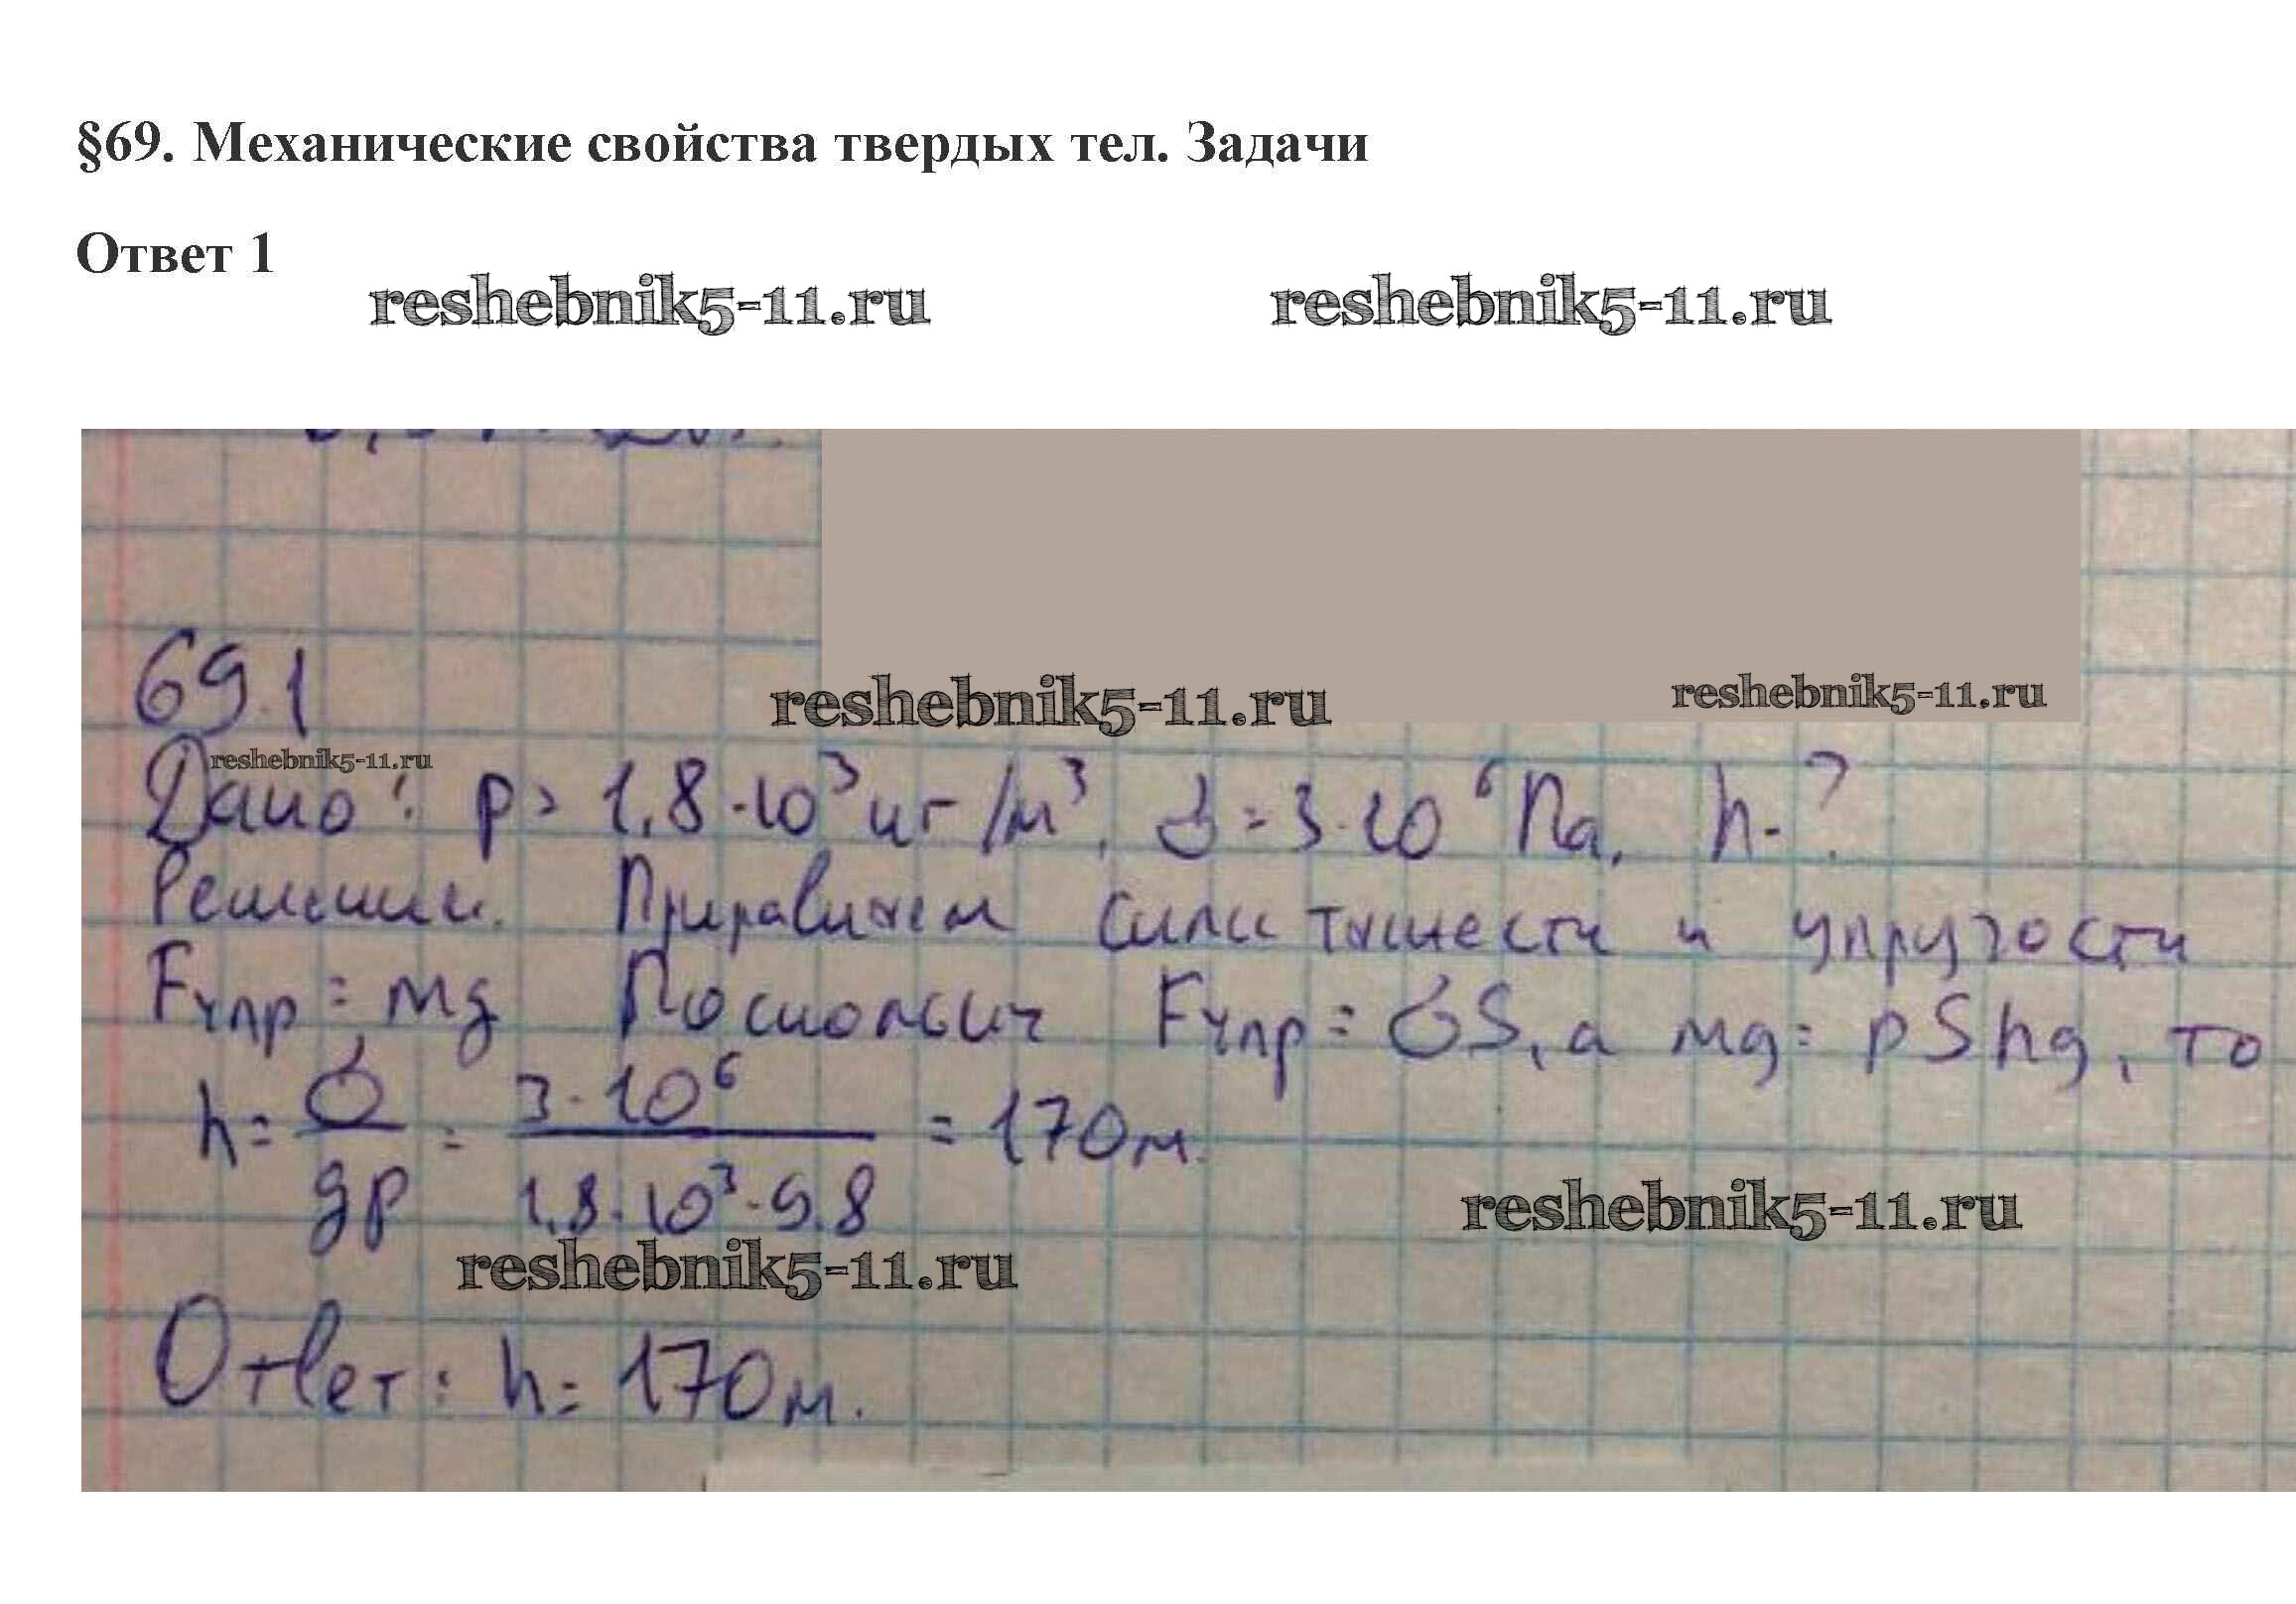 §69. Механические свойства твердых тел. Задачи
Ответ 1
reshebnik5-11.ru reshebnik5-11.ru
69.1
reshebnik5-11.ru reshebnik5-11.ru
reshebnik5-11.ru
Дано: ρ = 1,8·10³ кг/м³, σ = 3·10⁶ Па. h-?
Решение. Приравняем силы тяжести и упругости
Fупр = mg Поскольку Fупр = σS, а mg = ρShg, то
h = σ/gρ = 3·10⁶/1,8·10³·9.8 = 170м.
reshebnik5-11.ru
reshebnik5-11.ru
Ответ: h = 170м.